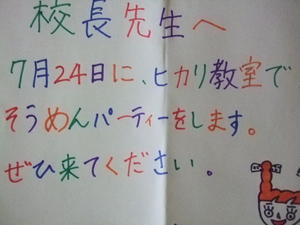 校長先生へ
7月24日に、ヒカリ教室で
そうめんパーティーをします。
ぜひ来てください。